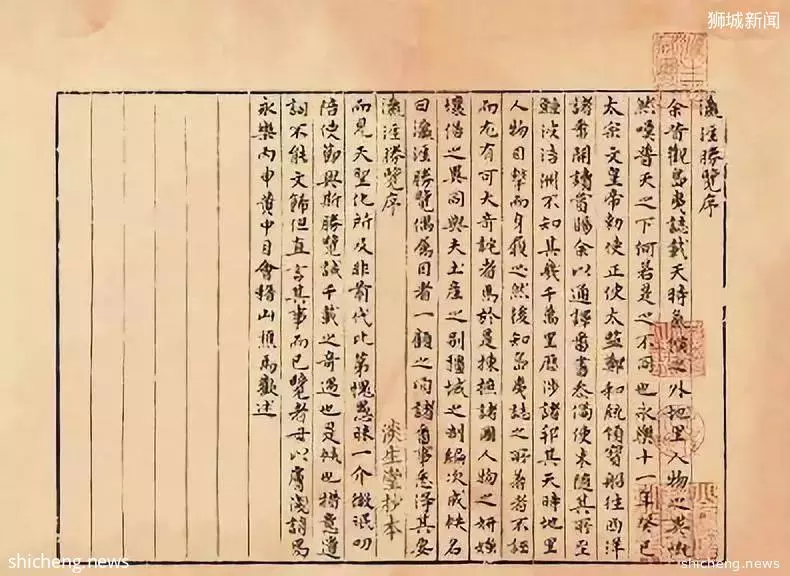 狮城新闻
瀛涯勝覽序
余昔觀島夷誌載天時氣候之外地里人物之異慨
然嘆普天之下何若是之不同也永樂十一年癸巳
太宗文皇帝勅使正使太監鄭和統領寶船往西洋
諸番開讀賞賜余以通譯番書忝備使末隨其所至
鯨波浩洲不知其幾千萬里歷涉諸邦其天時地里
人物目擊而身履之然後知島夷誌之所著者不誣
而尤有可大奇詫者焉於是採摭諸國人物之妍媸
壤俗之異同與夫土產之別疆域之制編次成帙名
曰瀛涯勝覽偶屬目者一顧之間諸番事悉得其要
瀛涯勝覽序 淡生堂抄本
而見天聖化所及非前代比第愧愚昧一介微氓叨
陪使節與斯勝覽誠千載之奇遇也是帙也措意遣
詞不能文飾但直書其事而已覽者毋以膚淺誚焉
永樂丙申黄中日會稽山樵馬歡述
shicheng.news
shicheng.news